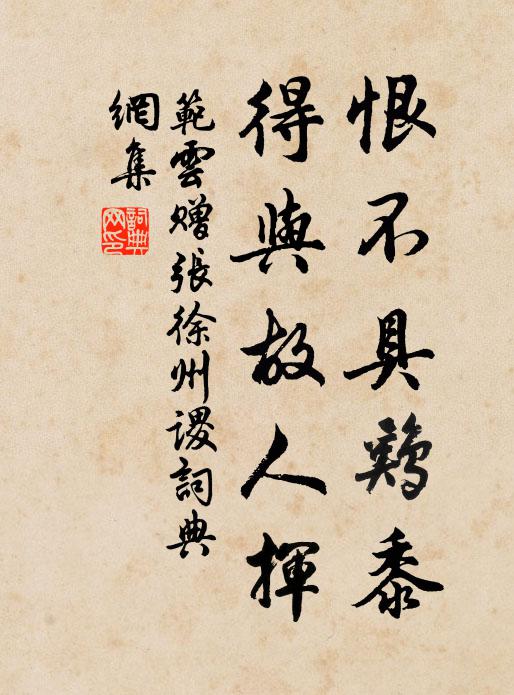 恨不具鷄黍
得與故人揮
範雲贈張徐州謖詞典
網集
詞典網印